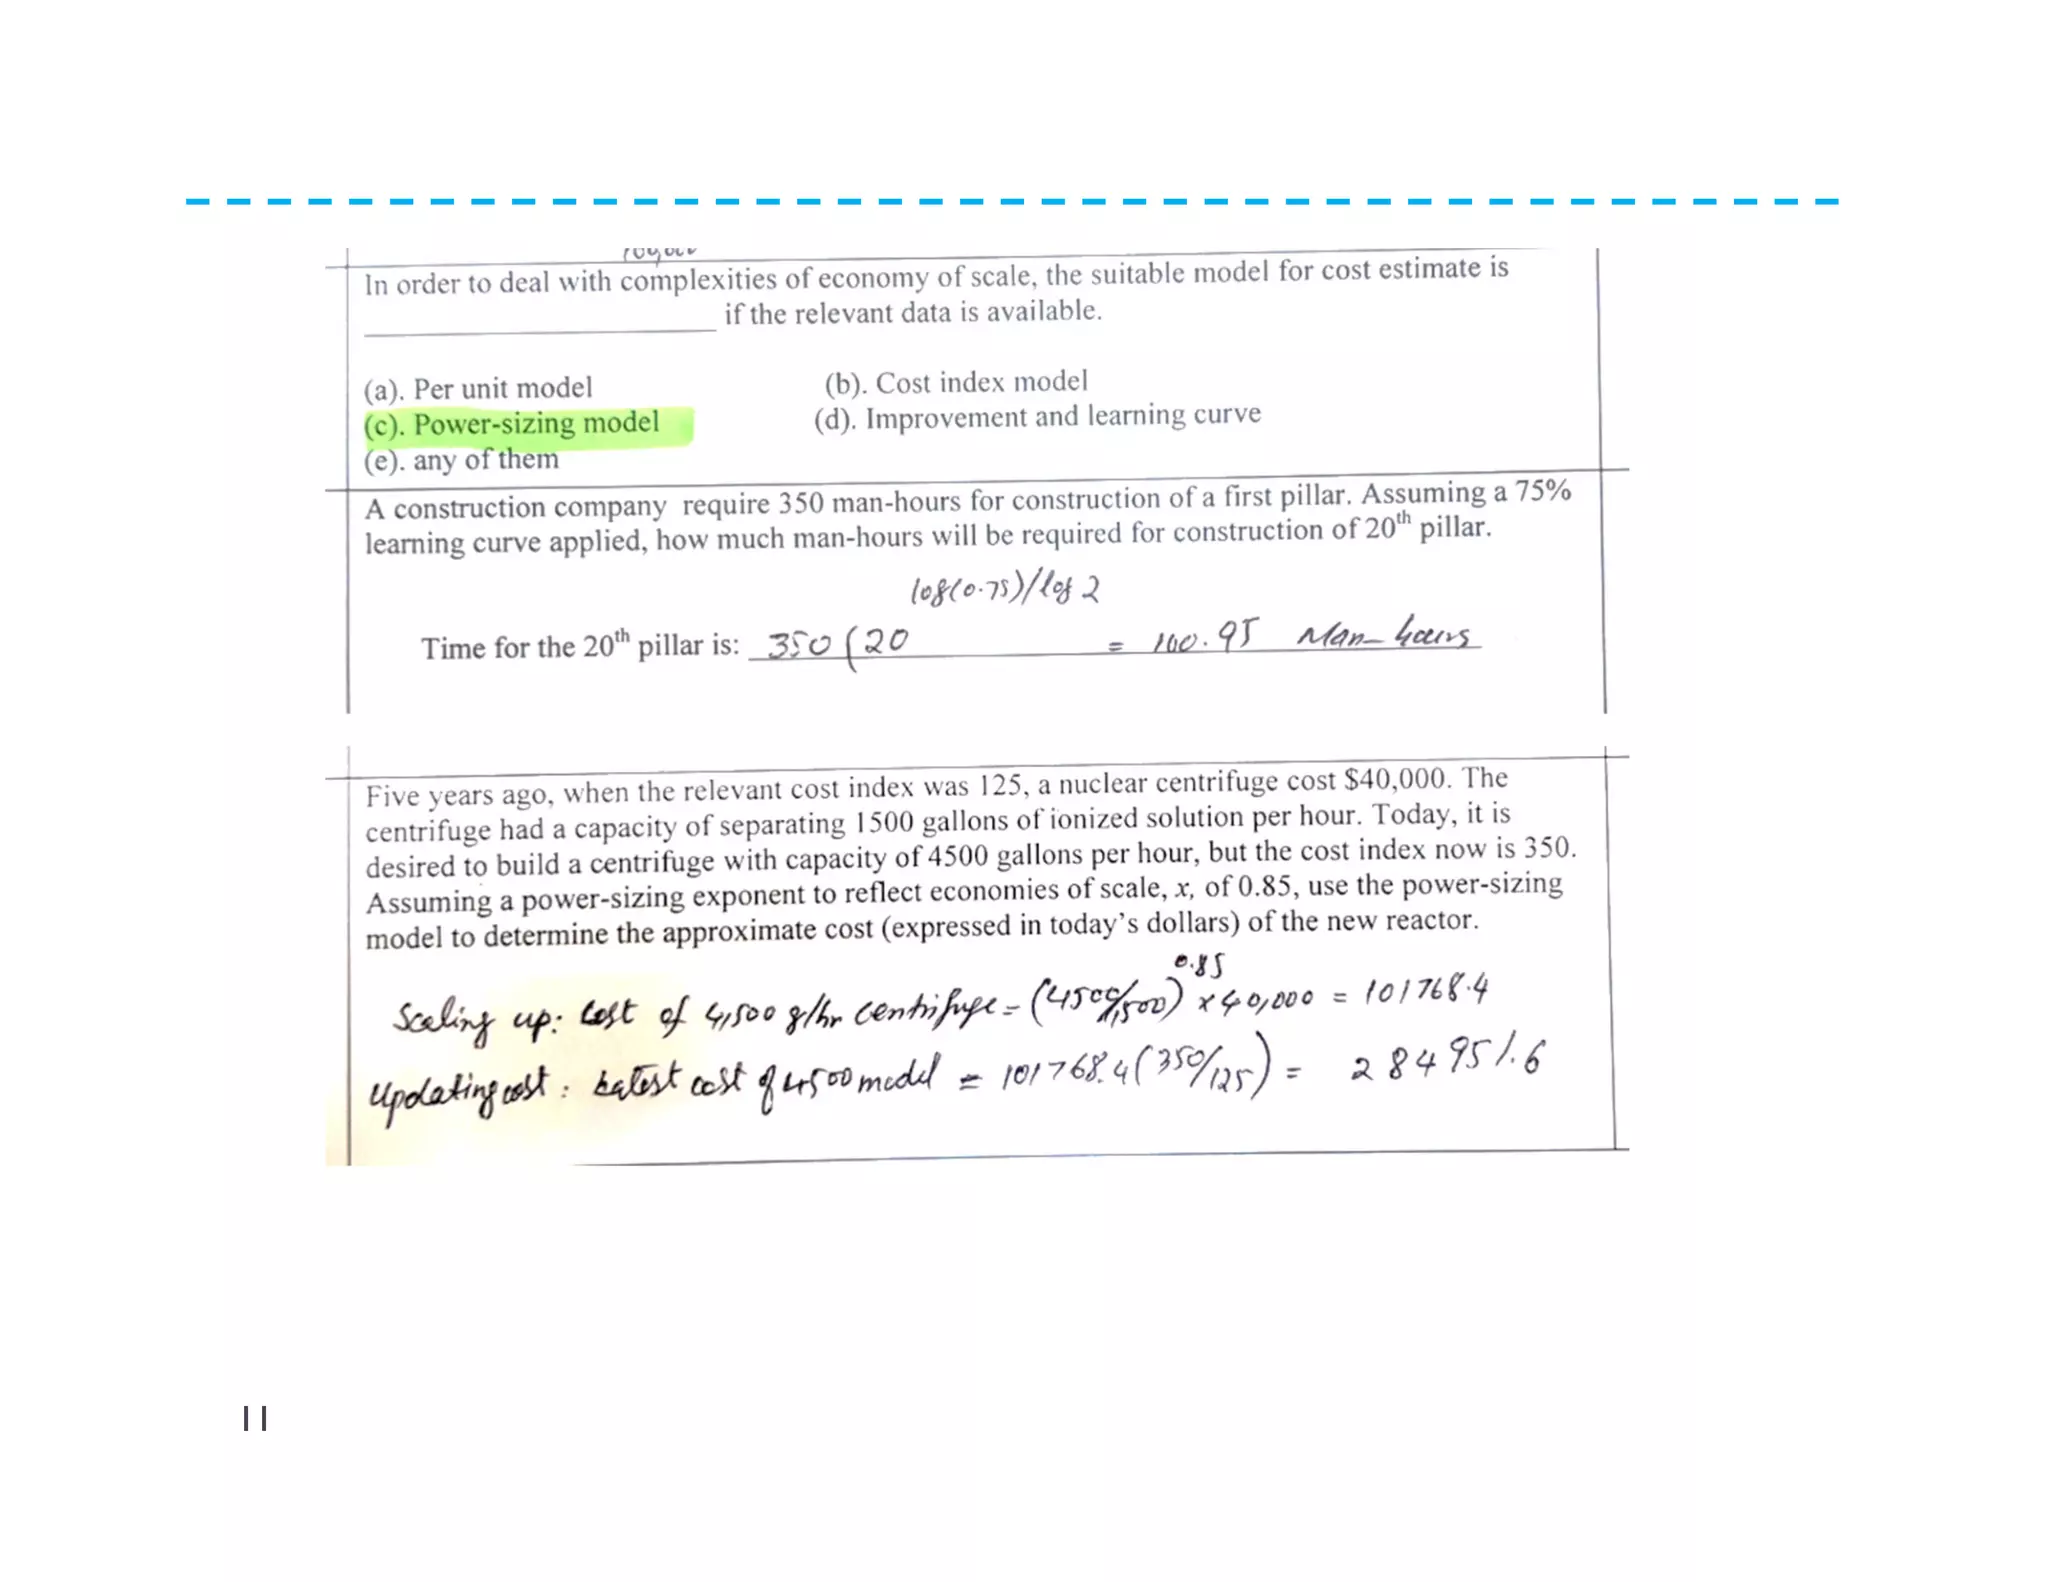 In order to deal with complexities of economy of scale, the suitable model for cost estimate is
if the relevant data is available.
(a). Per unit model (b). Cost index model
(c). Power-sizing model (d). Improvement and learning curve
(e). any of them
A construction company require 350 man-hours for construction of a first pillar. Assuming a 75%
learning curve applied, how much man-hours will be required for construction of 20th pillar.
log(0.75)/log 2
Time for the 20th pillar is: 350 (20 = 100.95 Man-hours
Five years ago, when the relevant cost index was 125, a nuclear centrifuge cost $40,000. The
centrifuge had a capacity of separating 1500 gallons of ionized solution per hour. Today, it is
desired to build a centrifuge with capacity of 4500 gallons per hour, but the cost index now is 350.
Assuming a power-sizing exponent to reflect economies of scale, x, of 0.85, use the power-sizing
model to determine the approximate cost (expressed in today's dollars) of the new reactor.
0.85
Scaling up: Cost of 4,500 g/hr centrifuge = (4500/1,500) x 40,000 = 101768.4
Updating cost: Latest cost of 4500 model = 101768.4(350/125) = 284951.6
11